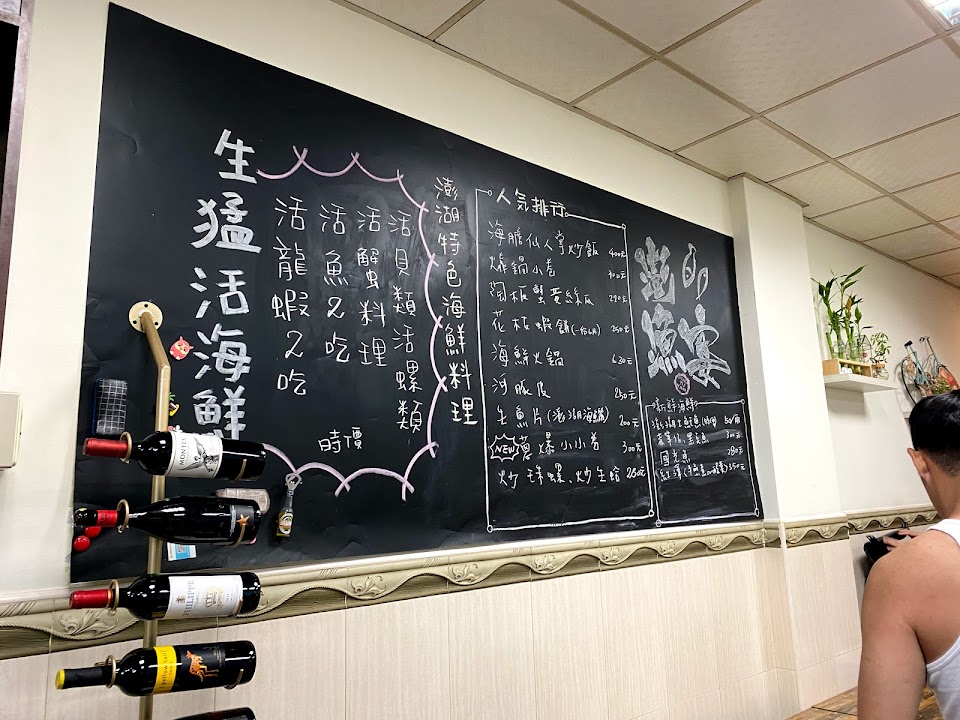 生猛活海鮮
活龍蝦2吃
活魚2吃
活蟹料理
活貝類活螺類
時價
澎湖特色海鮮料理
人氣排行
海膽仙人掌炒飯 400元
爆鍋小卷 300元
蟹黃絲瓜 290元
花枝蝦餅 250元
海鮮火鍋 630元
河豚皮 250元
生魚片(澎湖海鱺) 200元
NEW 爆小小卷 300元
炒珠螺、炒生蛤 250元
澎
漁宴
新鮮海鮮
MONTES
PHILIPPE
yellow tail